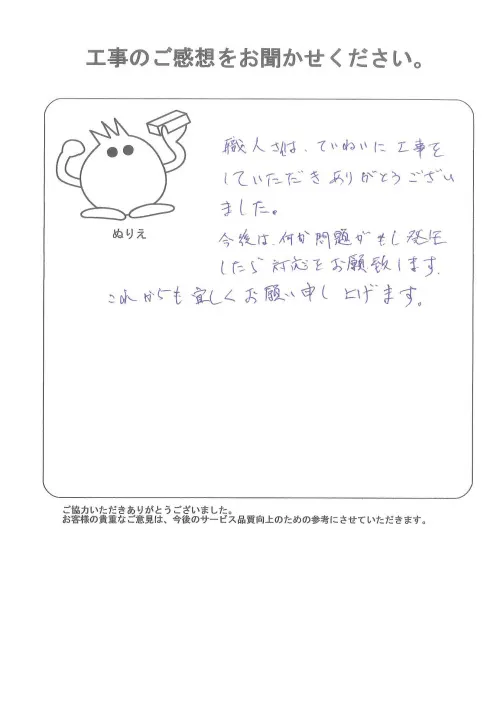 工事のご感想をお聞かせください。
ぬりえ
職人さんは、ていねいに工事を
していただきありがとうござい
ました。
今後は、何か問題がもし発生
したら対応をお願致します。
これからも宜しくお願い申し上げます。
ご協力いただきありがとうございました。
お客様の貴重なご意見は、今後のサービス品質向上のための参考にさせていただきます。